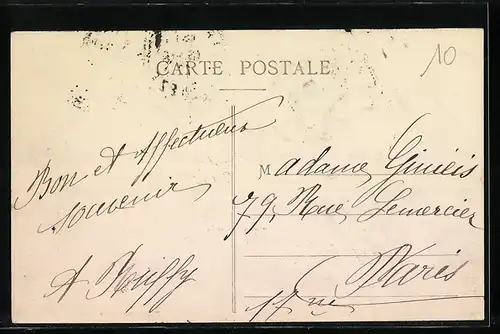 10
CARTE POSTALE
Bon et Affectueux
souvenir
Madame
79, Rue Lemercier
Paris
17me